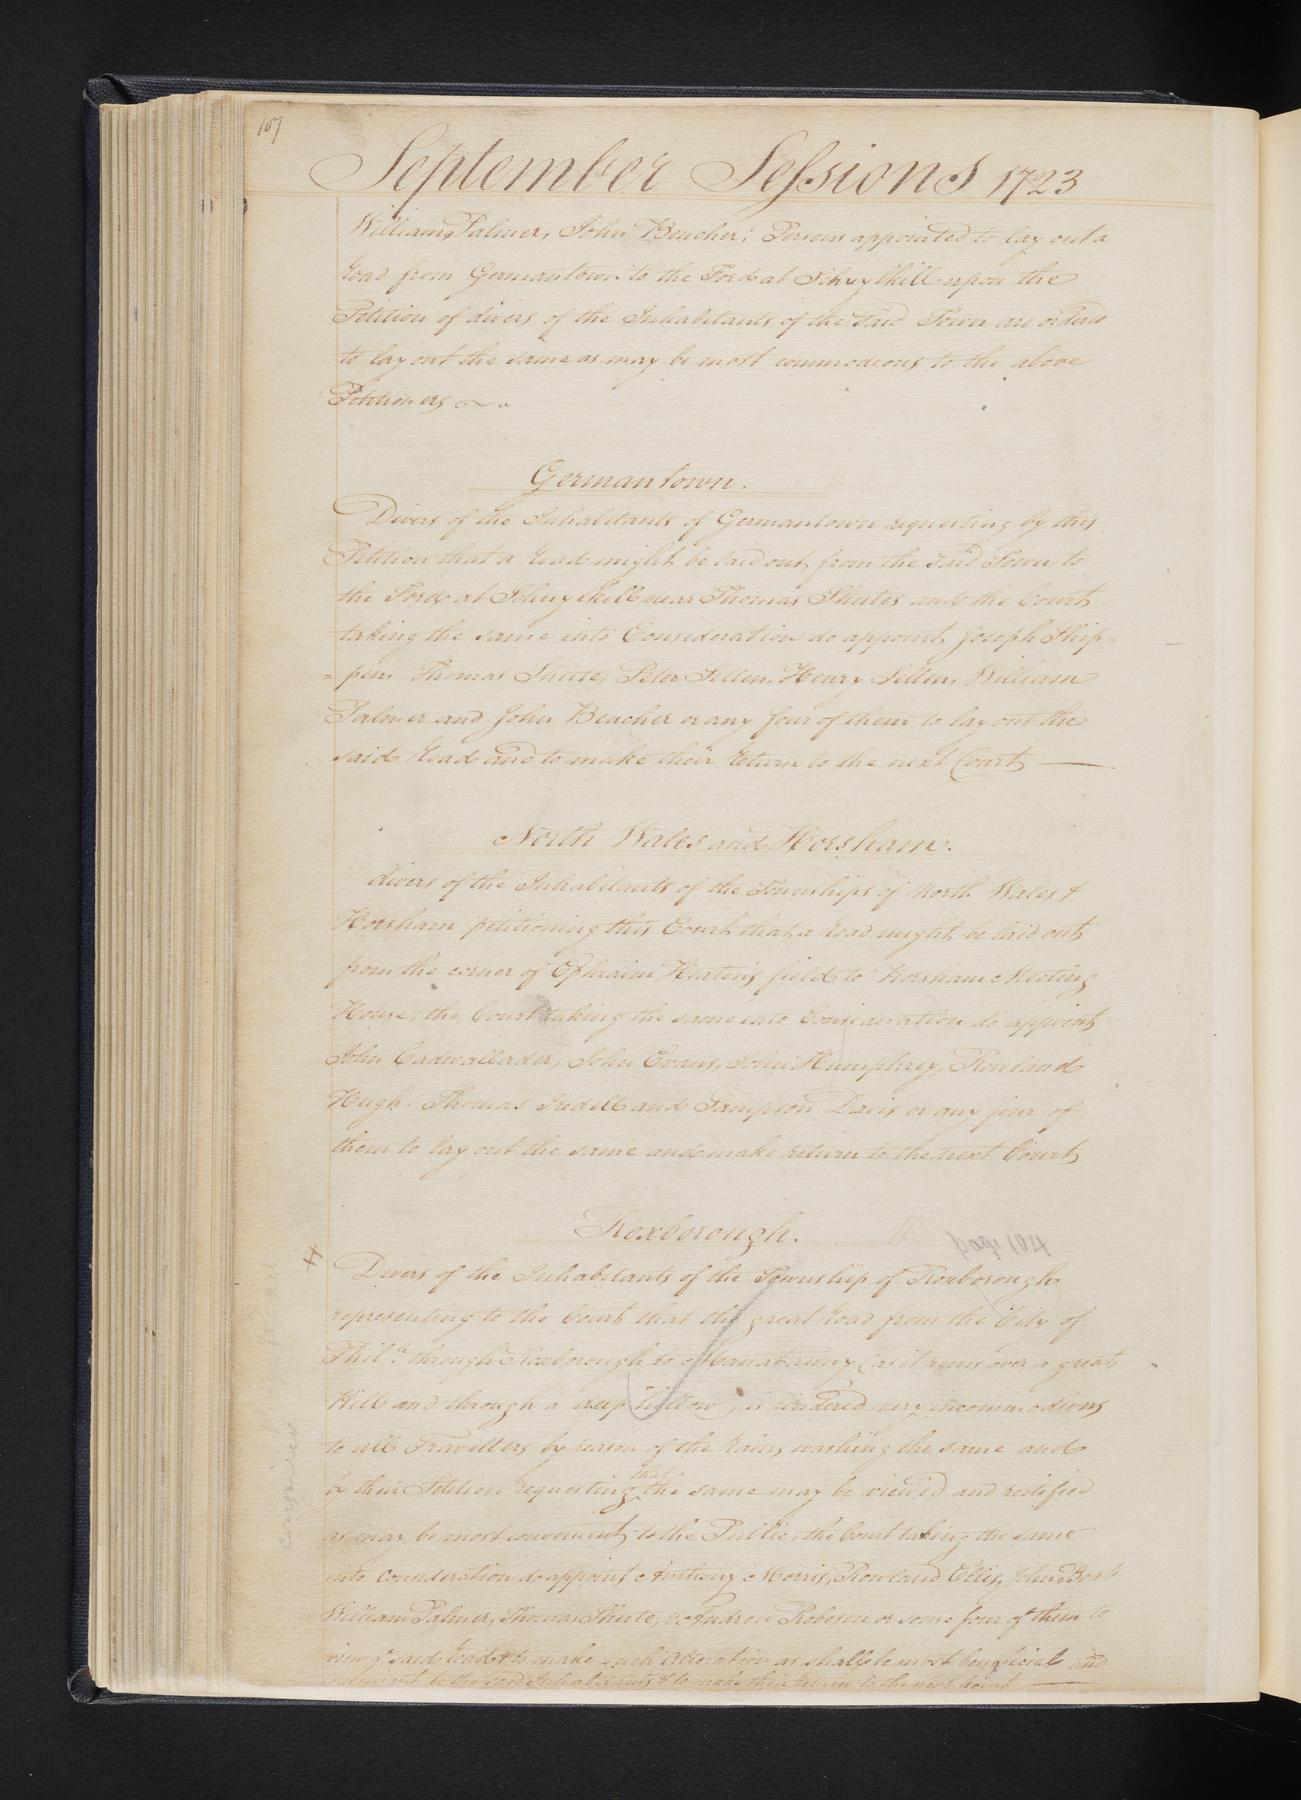 107
September Sessions 1723
William Palmer, John Beacher; Persons appointed to lay out a
Road from Germantown to the Ford at Schuylkill upon the
Petition of divers of the Inhabitants of the said Town are orderd
to lay out the same as may be most commodious to the above
Petitioners
Germantown.
Divers of the Inhabitants of Germantown requesting by this
Petition that a Road might be laid out from the said Town to
the Ford at Schuylkill near Thomas Shutes and the Court
taking the same into Consideration do appoint Joseph Ship=
=pen Thomas Shute, Peter Sellen, Henry Sellen, William
Palmer and John Beacher or any four of them to lay out the
said Road and to make their Return to the next Court
North Wales and Horsham.
divers of the Inhabitants of the Townships of North Wales &
Horsham petitioning this Court that a Road might be laid out
from the corner of Ephraim Heaton's field to Horsham Meeting
House, the Court taking the same into Consideration do appoint
John Cadwallader, John Evans, John Humphrey, Rowland
Hugh, Thomas Iredell and Sampson Davis or any four of
them to lay out the same and make return to the next Court
Roxborough.
Divers of the Inhabitants of the Township of Roxborough
representing to the Court that the great Road from the City of
Phila. through Roxborough to (as it runs over a great
Hill and through a deep hollow) is rendered very incommodious
to all Travellers by reason of the Rains washing the same and
by their Petition requesting that the same may be view'd and rectified
as may be most convenient to the Public, the Court taking the same
into consideration do appoint Anthony Morris, Rowland Ellis, John
William Palmer, Thomas Shute, & Andrew Robeson or some four of them to
view ye said Road & to make such Alteration as shall be most beneficial and
convenient to the said Inhabitants & to make their Return to the next Court